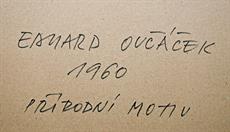 EDUARD OVČÁČEK
1960
PŘÍRODNÍ MOTIV